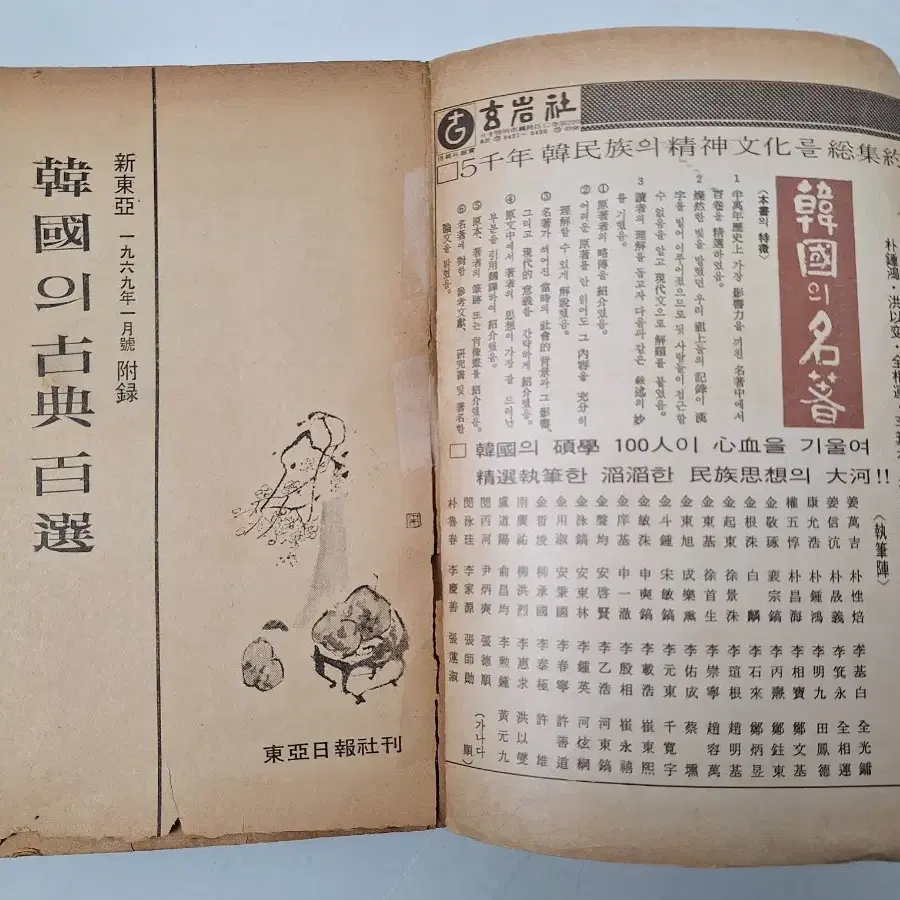 新東亞 一九六九年一月號 附錄
韓國의 古典百選
東亞日報社刊
玄岩社
□5千年 韓民族의 精神文化를 総集約
韓國의 名著
〈本書의 特徵〉
1 半萬年 歷史上 가장 影響力을 끼친 名著中에서
百卷을 精選하였음。
2 燦然한 빛을 발했던 우리 祖上들의 記錄이 漢
字를 빌어 이루어졌으므로 뒷사람들이 접근할
수 없음을 알고 現代文으로 解題를 붙였음。
3 讀者의 理解를 돕고자 다음과 같은 敍述의 妙
를 기했음。
① 原著者의 略傳을 紹介했음。
② 어려운 原著를 안 읽어도 그 內容을 充分히
理解할 수 있게 解說했음。
③ 名著가 씌어진 當時의 社會的 背景과 그 影響、
그리고 現代的 意義를 간략하게 紹介했음。
④ 原文中에서 著者의 思想이 가장 잘 드러난
부분을 引用 飜譯하여 紹介했음。
⑤ 原本、著者의 筆跡 또는 肖像畫를 紹介했음。
⑥ 名著에 對한 參考文獻、硏究書 및 著名한
論文을 밝혔음。
□ 韓國의 碩學 100人이 心血을 기울여
精選執筆한 滔滔한 民族思想의 大河!!
〈執筆陣〉
姜萬吉 朴性焙 李基白 全光鏞
姜信沆 朴晟義 李箕永 全相運
康允浩 朴鍾鴻 李明九 田鳳德
權五惇 朴昌海 李相寶 鄭文基
金敬琢 裵宗鎬 李丙燾 鄭鉦東
金根洙 白 麟 李石來 鄭炳昱
金起東 徐景洙 李瑄根 趙明基
金東基 徐首生 李崇寧 趙容萬
金東旭 成樂熏 李佑成 蔡 壎
金斗鍾 宋敏鎬 李元東 千寬宇
金敏洙 申奭鎬 李載浩 崔東熙
金庠基 申一澈 李殷相 崔永禧
金聲均 安啓賢 李乙浩 河東鎬
金泳鎬 安東林 李鍾英 河炫綱
金用淑 李春寧 許善道
金哲埈 柳承國 李泰極 許 雄
南廣祐 柳洪烈 李惠求 洪以燮
盧道陽 兪昌均 李勳鍾 黃元九
閔丙河 尹炳奭 張德順 (가나다順)
閔泳珪 李家源 張師勛
朴魯春 李慶善 張蓮淑